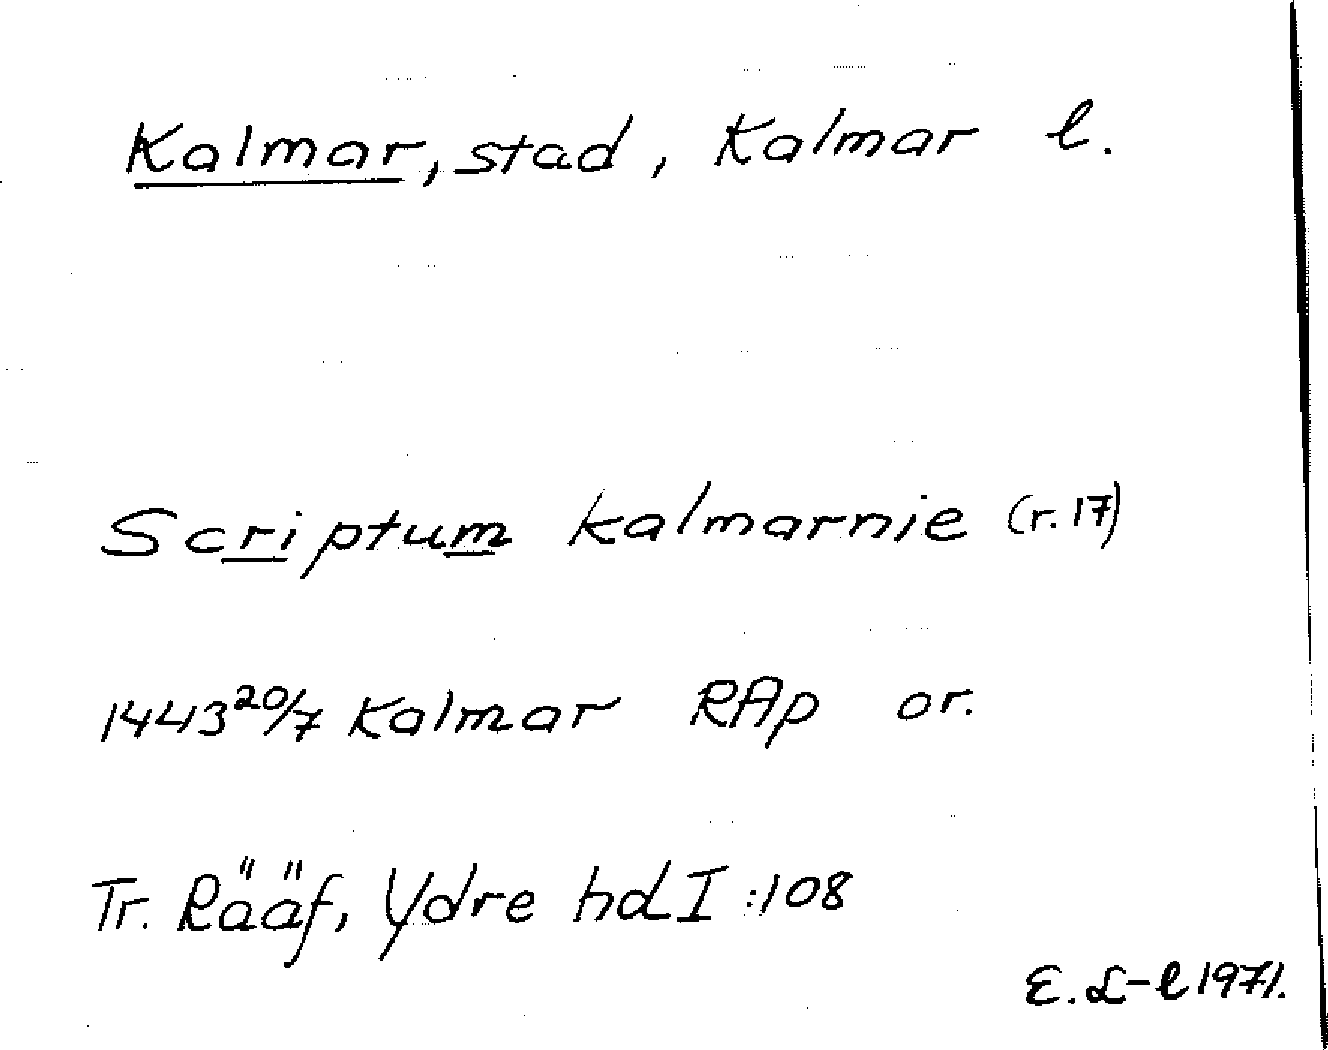 Kalmar, stad, Kalmar l.
Scriptum kalmarnie (r.17)
1443 20/7 Kalmar RAp or.
Tr. Rääf, Ydre hd I:108
E. L-l 1971.